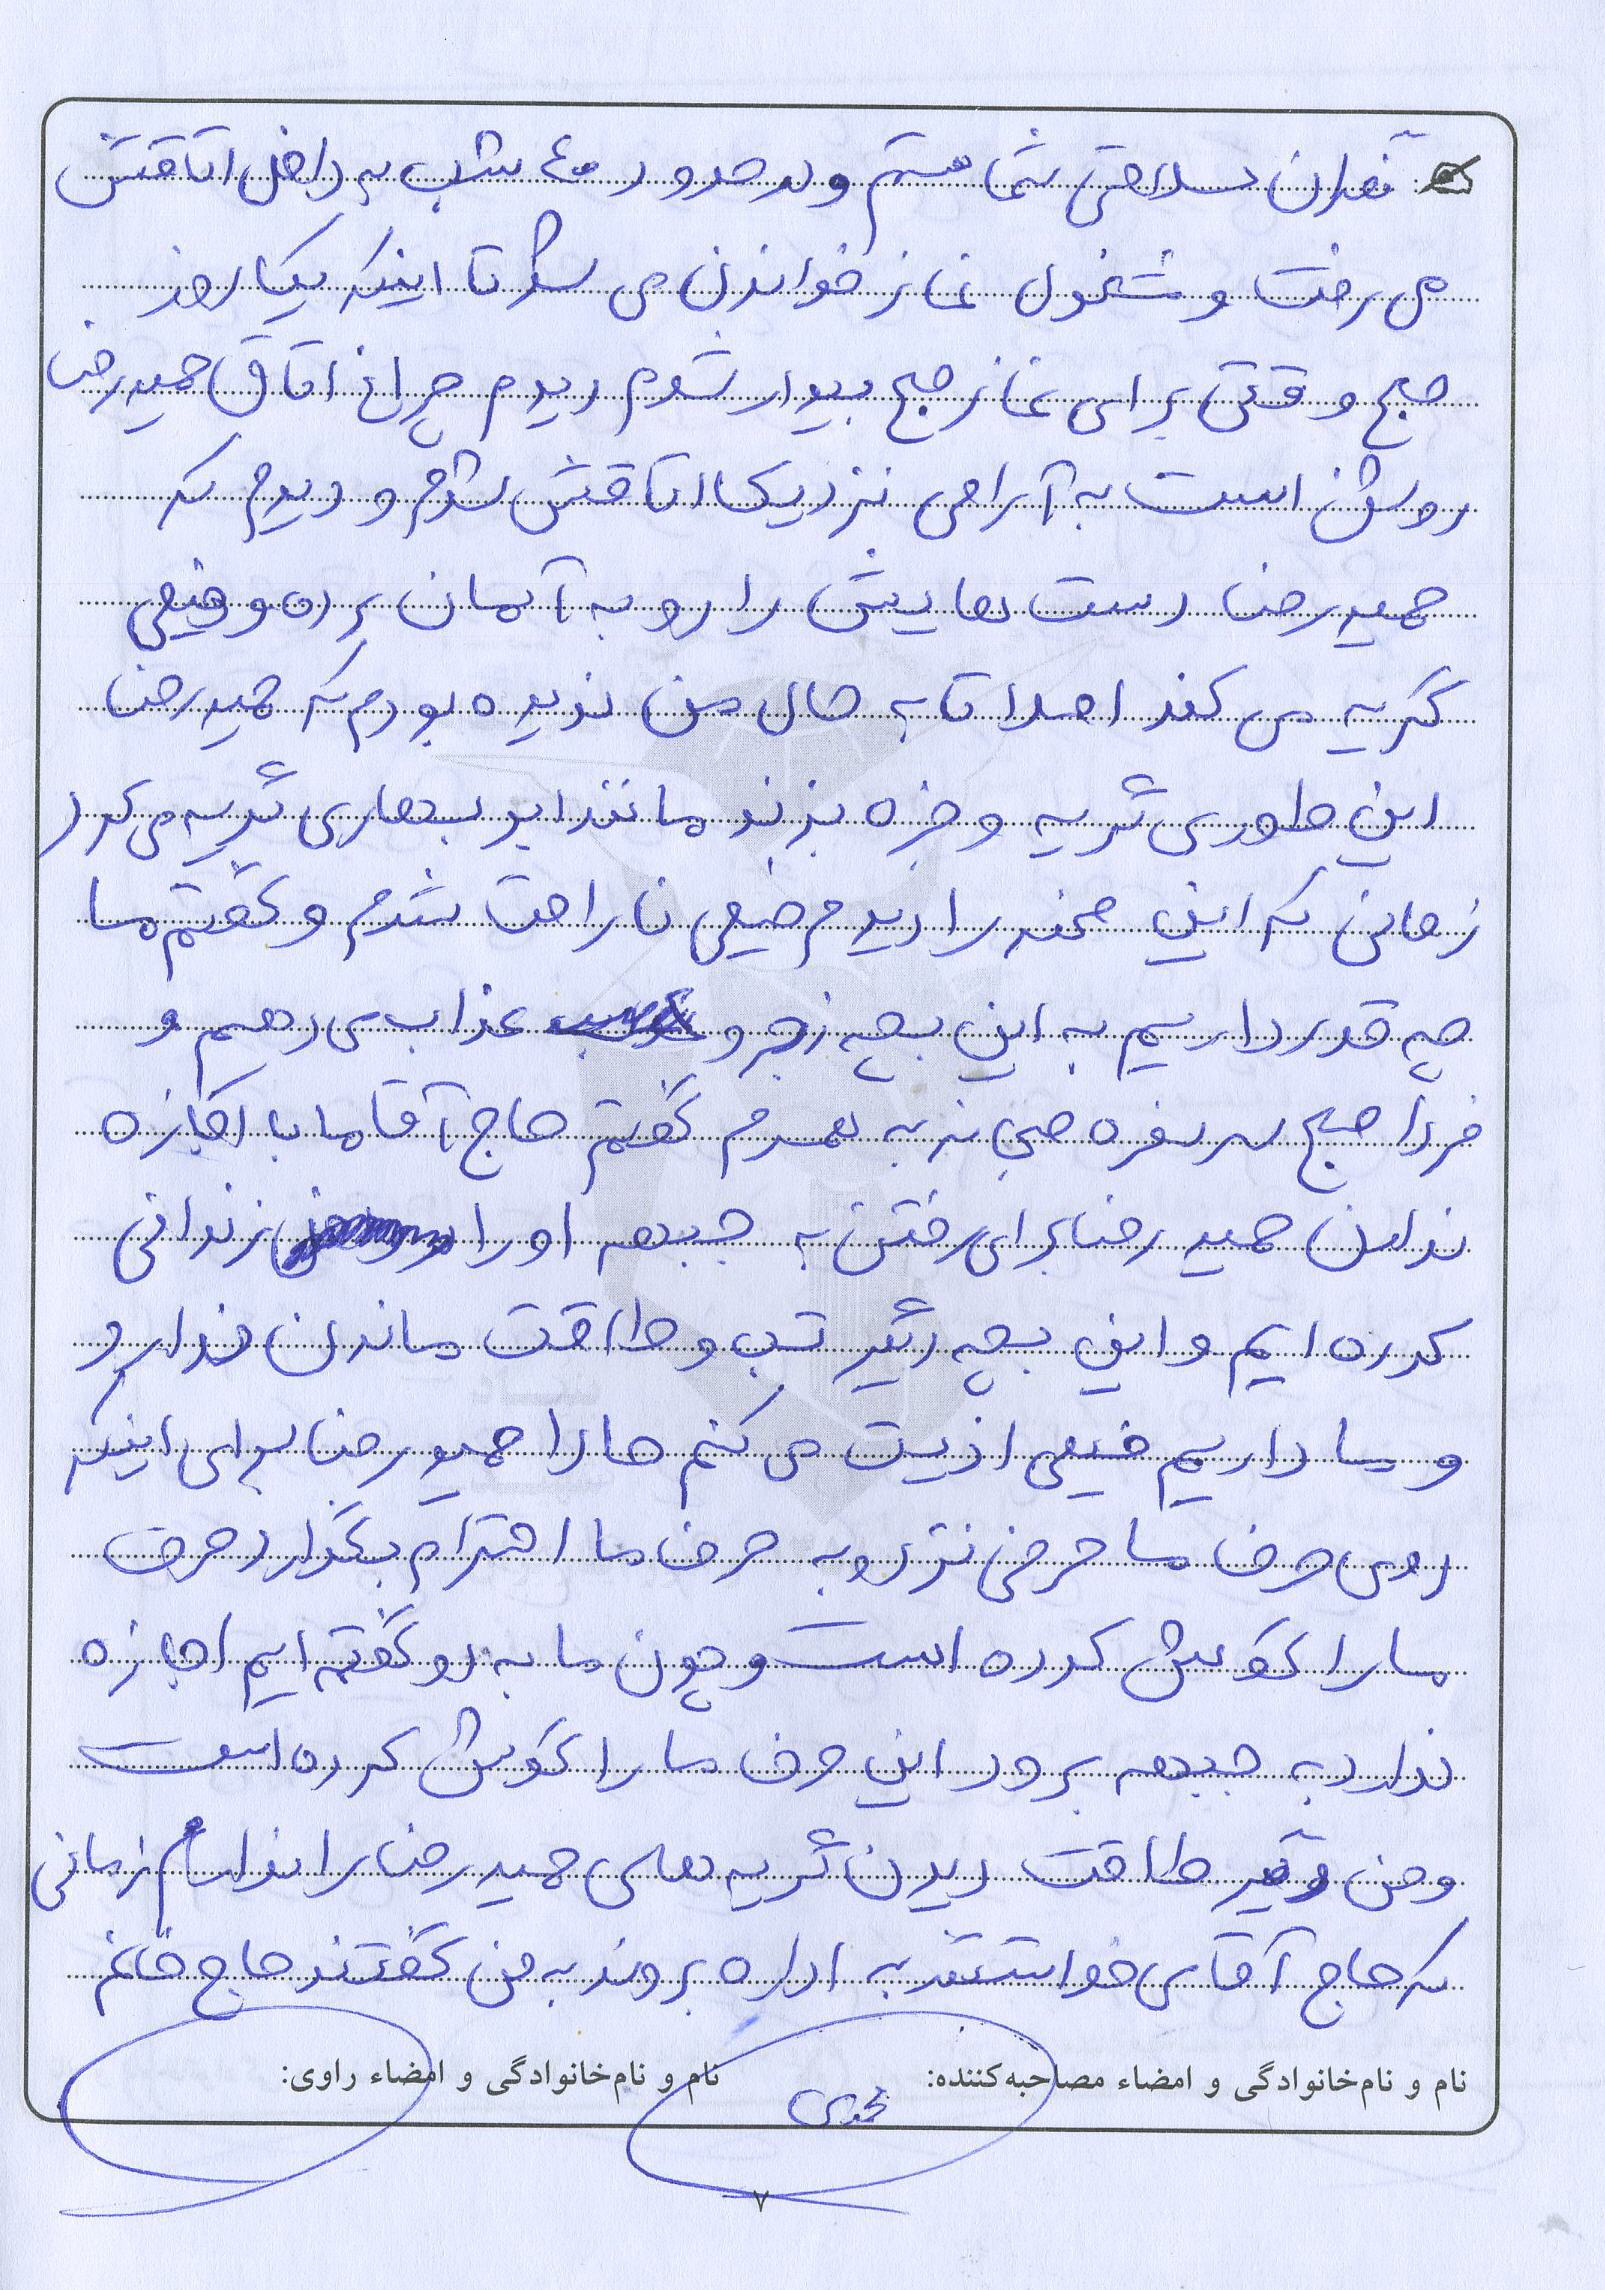 نگران سلامتی شما هستم و در حدود ۴۰ شب به داخل اتاقش
می رفت و مشغول نماز خواندن می شد تا اینکه یک روز
صبح وقتی برای نماز صبح بیدار شدم دیدم چراغ اتاق حمیدرضا
روشن است به آرامی نزدیک اتاقش شدم و دیدم که
حمیدرضا دست هایش را رو به آسمان برده و خیلی
گریه می کند اصلا تا به حال من ندیده بودم که حمیدرضا
این طوری گریه و ضجه بزند مانند ابر بهاری گریه می کرد
زمانی که این صحنه را دیدم خیلی ناراحت شدم و گفتم ما
چه قدر داریم به این بچه زجر و عذاب می دهیم و
فردا صبح سر سفره صبحانه به همسرم گفتم حاج آقا ما با اجازه
ندادن حمیدرضا برای رفتن به جبهه او را زندانی
کرده ایم و این بچه دیگر تب و طاقت ماندن ندارد
و ما داریم خیلی اذیت می کنم حالا حمیدرضا برای اینکه
روی حرف ما حرفی نزند و به حرف ما احترام بگذارد حرف
ما را گوش کرده است و چون ما به او گفته ایم اجازه
ندارد به جبهه برود این حرف ما را گوش کرده است
و من دیگر طاقت دیدن گریه های حمیدرضا را ندارم زمانی
که حاج آقا می خواستند به اداره بروند به من گفتند حاج خانم
نام و نام‌خانوادگی و امضاء مصاحبه‌کننده: نام و نام‌خانوادگی و امضاء راوی:
محمدی
۷